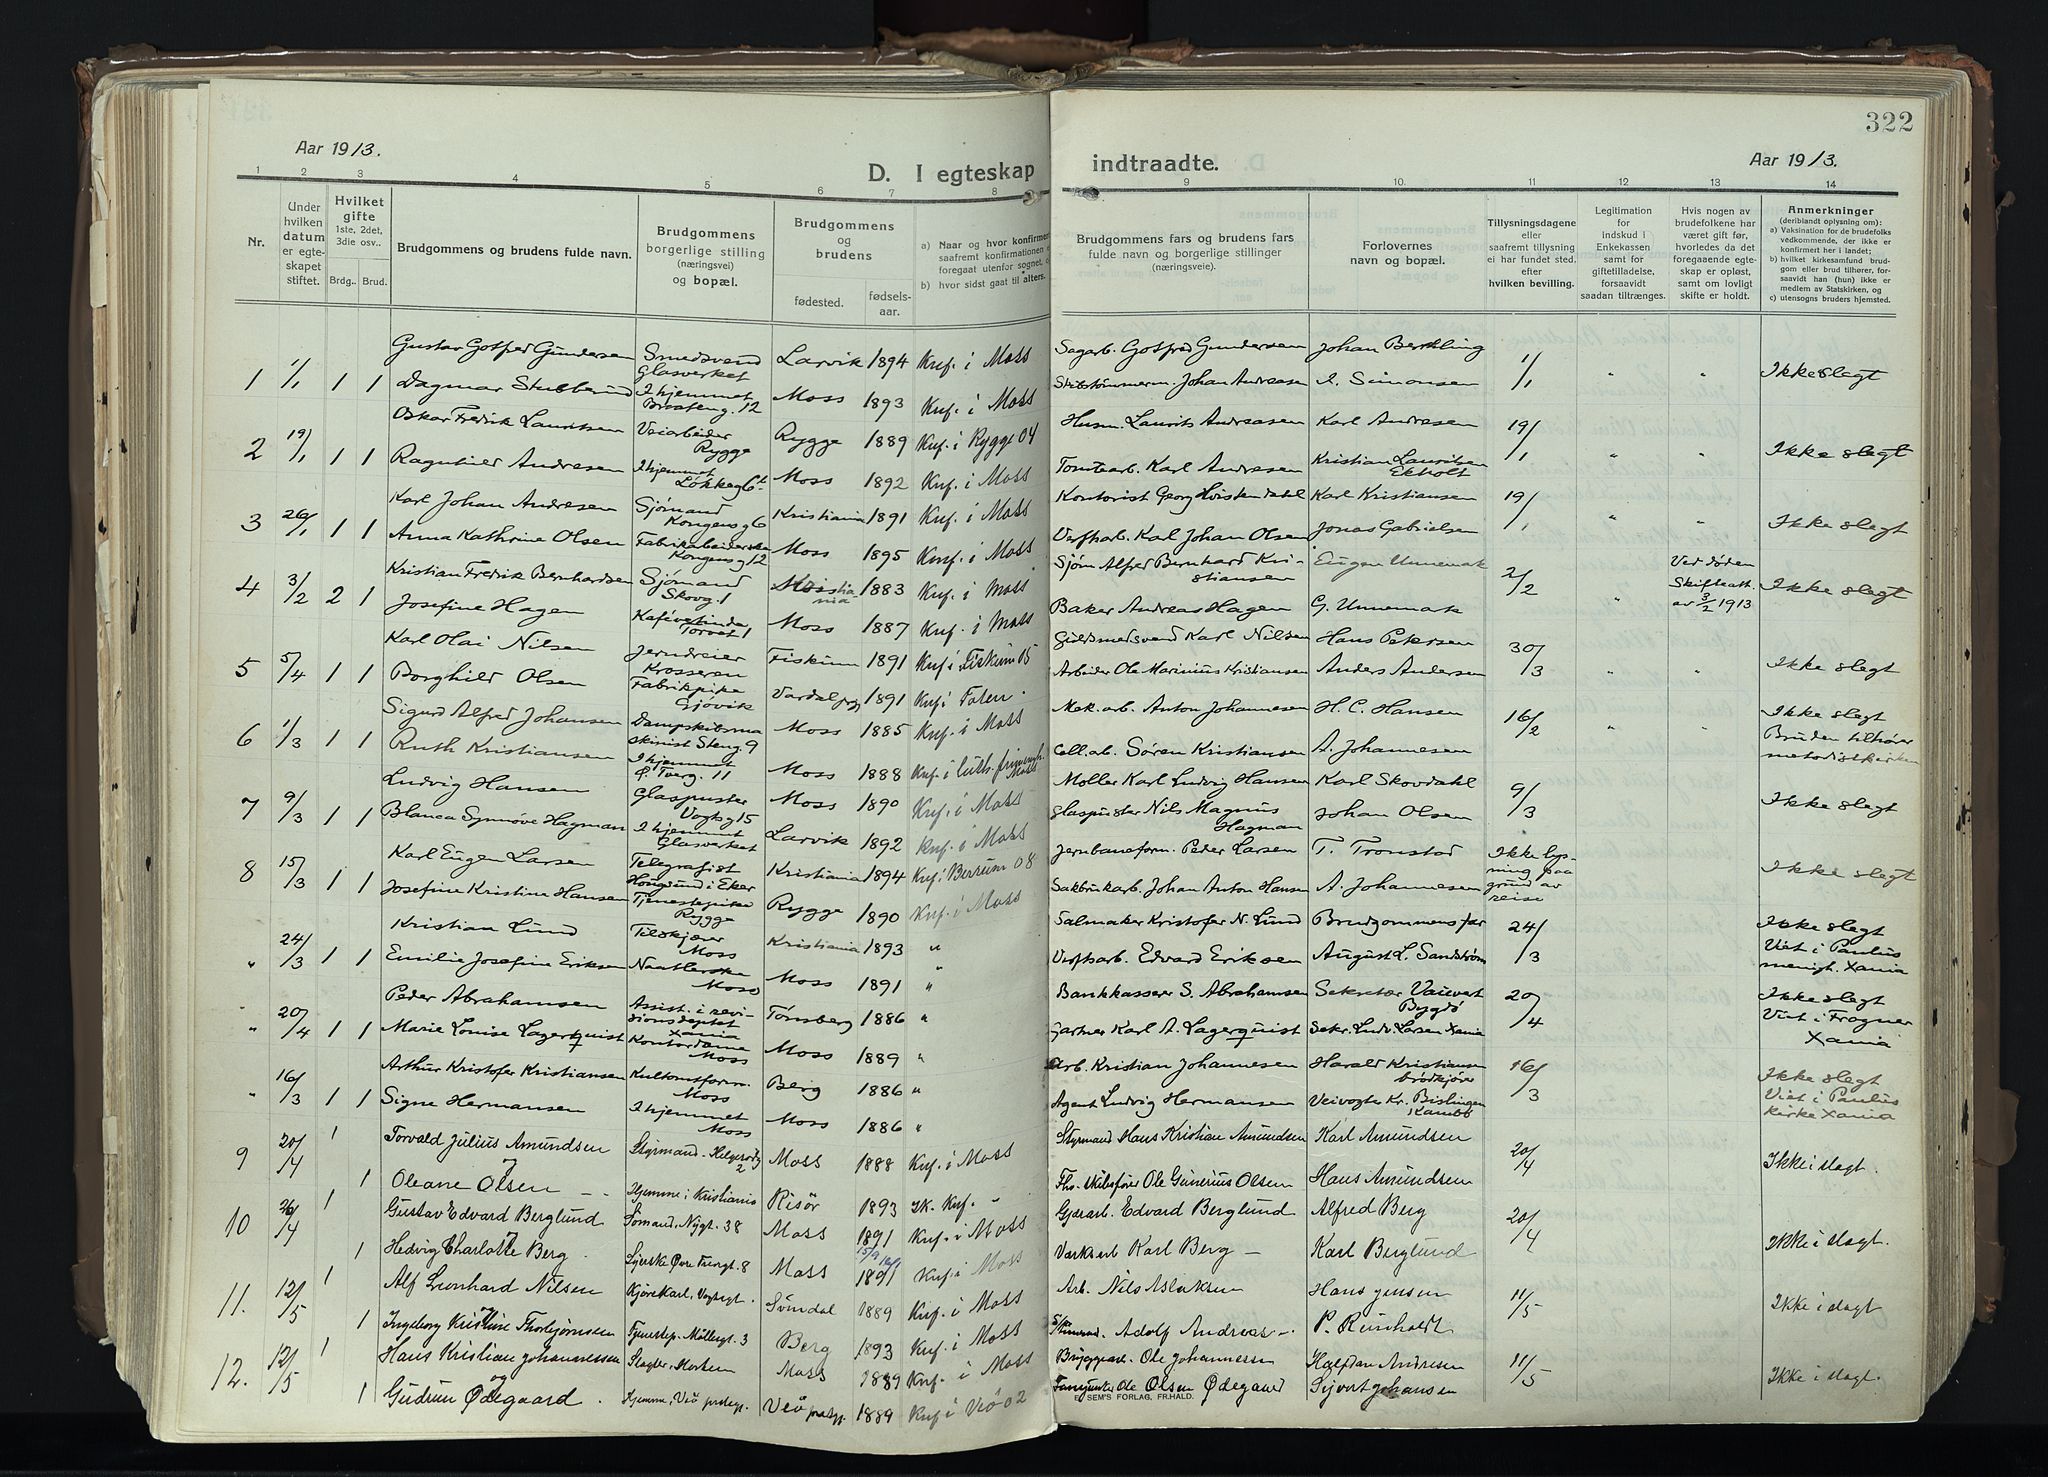 322
Aar 1913.
D. I egteskap indtraadte.
Aar 1913.
1 2 3 4 5 6 7 8 9 10. 11 12 13 14
Nr.
Under hvilken datum er egteskapet stiftet.
Hvilket gifte 1ste, 2det, 3die osv..
Brdg.. Brud.
Brudgommens og brudens fulde navn.
Brudgommens borgerlige stilling (næringsvei) og bopæl.
Brudgommens og brudens
fødested. fødselsaar.
a) Naar og hvor konfirmert
saafremt konfirmationen
foregaat utenfor sognet,
b) hvor sidst gaat til alters.
Brudgommens fars og brudens fars fulde navn og borgerlige stillinger (næringsveie).
Forlovernes navn og bopæl.
Tillysningsdagene eller saafremt tillysning ei har fundet sted. efter hvilken bevilling.
Legitimation for indskud i Enkekassen samt for giftetilladelse, forsaavidt saadan tiltrænges.
Hvis nogen av brudefolkene har været gift før, hvorledes da det foregaaende egteskap er opløst, samt om lovligt skifte er holdt.
Anmerkninger (deriblandt oplysning om): a) Vaksination for de brudefolks vedkommende, der ikke er konfirmert her i landet; b) hvilket kirkesamfund brudgom eller brud tilhører, forsaavidt han (hun) ikke er medlem av Statskirken, og c) utensogns bruders hjemsted.
1 1/1 1 1 Gustav Gotfred Gundersen Smedsvend Glasverket Larvik 1894 Knf. i Moss Sagarb. Gotfred Gundersen Johan Bertling 1/1 " " Ikke slegt
Dagmar Stubberud I hjemmet Braateng. 12 Moss 1893 Knf. i Moss Skibstømmerm. Johan Andreasen I. Simonsen
2 19/1 1 1 Oskar Fredrik Lauritsen Veiarbeider Rygge Rygge 1889 Knf. i Rygge 04 Husm. Laurits Andreasen Karl Andresen 19/1 " " Ikke slegt
Ragnhild Andresen I hjemmet Løkkeg 6 Moss 1892 Knf. i Moss Tomtearb. Karl Andresen Kristian Lauritsen Ekholt
3 26/1 1 1 Karl Johan Andresen Sjømand Kongensg 6 Kristiania 1891 Knf. i Moss Kontorist Georg Hvistendahl Karl Kristiansen 19/1 " " Ikke slegt
Anna Kathrine Olsen Fabrikarbeiderske Kongensg 12 Moss 1895 Knf. i Moss Verftarb. Karl Johan Olsen Jonas Gabrielsen
4 3/2 2 1 Kristian Fredrik Bernhardsen Sjømand Skovg. 1 1883 Knf. i Moss Sjøm Alfred Bernhard Kristiansen Eugen Unnemark 2/2 " Ved døden Skifteatt. av 3/2 1913 Ikke slegt
Josefine Hagen Kafévertinde Torvet 1 Moss 1887 Knf. i Moss Baker Andreas Hagen G. Unnemark
5 5/4 1 1 Karl Olai Nilsen Jerndreier Krosseren Fiskum 1891 Knf i Fiskum 05 Guldsmedsvend Karl Nilsen Hans Petersen 30/3 " " Ikke slegt
Borghild Olsen Fabrikpike Gjøvik Vardal pg 1891 Knf i Toten. Arbeider Ole Marinius Kristiansen Anders Andersen
6 1/3 1 1 Sigurd Alfred Johansen Dampskibsmaskinist Steng. 9 Moss 1885 Knf. i Moss Mek. arb. Anton Johannesen H. C. Hansen 16/2 " " Ikke slegt
Ruth Kristiansen I hjemmet Ø. Tverg. 11 Moss 1888 Knf. i luth. frimenigh. Moss Cell. ab. Søren Kristiansen A. Johannesen Bruden tilhører metodistkirken
7 9/3 1 1 Ludvig Hansen Glaspuster Vogtsg 15 Moss 1890 Knf. i Moss Møller Karl Ludvig Hansen Karl Skovdahl 9/3 Ikke slegt
Blanca Synnøve Hagman I hjemmet Glasverket Larvik 1892 Knf. i Moss Glaspuster Nils Magnus Hagman Johan Olsen
8 15/3 1 1 Karl Eugen Larsen Telegrafist Hougsund i Eker Kristiania 1894 Knf i Berrum 08 Jernbaneform. Peder Larsen T. Tronstad Ikke lysning paa grund av reise Ikke slegt
Josefine Kristine Hansen Tjenestepike Rygge Rygge 1890 Knf. i Moss Sakbrukarb. Johan Anton Hansen A. Johannesen
" 24/3 1 1 Kristian Lund Tilskjærer Moss Kristiania 1893 " Salmaker Kristofer N. Lund Brudgommens far 24/3 Ikke slegt
Emilie Josefine Eriksen Naatlerske Moss Moss 1891 " Verftsarb. Edvard Eriksen August L. Sandstrøm Viet i Paulus menigh. Xania
" 20/4 1 1 Peder Abrahamsen Assist. i revisionsdeptet Xania Tønsberg 1886 " Bankkasserer S. Abrahamsen Sekretær Vauvert Bygdø 20/4 Ikke slegt
Marie Louise Lagerquist Kontordame Moss Moss 1889 " Gartner Karl A. Lagerquist Sekr. Ludv. Larsen Xania Viet i Frogner Xania
" 16/3 1 1 Arthur Kristofer Kristiansen Kultomtform. Moss Berg 1886 " Arb. Kristian Johannesen Harald Kristiansen brødkjører 16/3 Ikke slegt
Signe Hermansen I hjemmet Moss Moss 1886 " Agent Ludvig Hermansen Veivogter Kr. Bislingen Kambo Viet i Paulus kirke Xania
9 20/4 1 Torvald Julius Amundsen Styrmand - Helgerødg 2 Moss 1888 Knf. i Moss Styrmand Hans Kristian Amundsen Karl Amundsen 20/4 Ikke i slegt.
1 og Oleane Olsen Hjemme i Kristiania Risör 1893 Ik. Knf. Fhv. skibsfører Ole Gunerius Olsen Hans Amundsen
10 26/4 1 Gustav Edvard Berglund Sømand, Nygt. 38 Moss 1891 Knf. i Moss Gjærarb. Edvard Berglund Alfred Berg 20/4 Ikke i slegt.
1 og Hedvig Charlotte Berg Syerske Øvre Tvergt. 8 Moss 1891 Knf. i Moss Værksarb Karl Berg Karl Berglund
11. 12/5 1 Alf Leonhard Nilsen Kjørekarl, Vogtsgt. 1889 Knf. i Moss Arb. Nils Aslaksen Hans Jensen 11/5 Ikke i slegt
1 og Ingeborg Kristine Thorbjørnsen Tjenestep. Møllergt. 3 Berg 1893 Knf. i Moss Adolf Andreas P. Reinholdt
12. 12/5 1 Hans Kristian Johannessen Slagter, Horten Moss 1889 Knf. i Moss Bryggearb. Ole Johannessen Halfdan Andresen 11/5 Ikke i slegt.
1 og Gudrun Ødegaard. Hjemme, Veö prstegj. Veö prstgj. 1889 Knf i Veö 02 Ole Olsen Ødegaard Sivert Johansen
E. SEM'S FORLAG, FR.HALD.